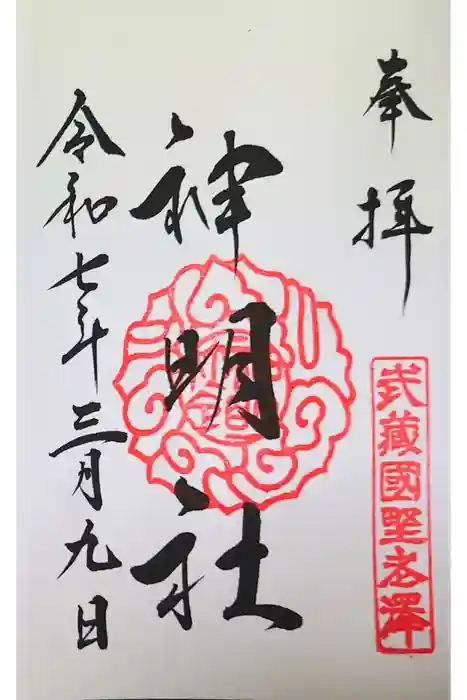 奉拝
武藏國野老澤
神明社
令和七年三月九日